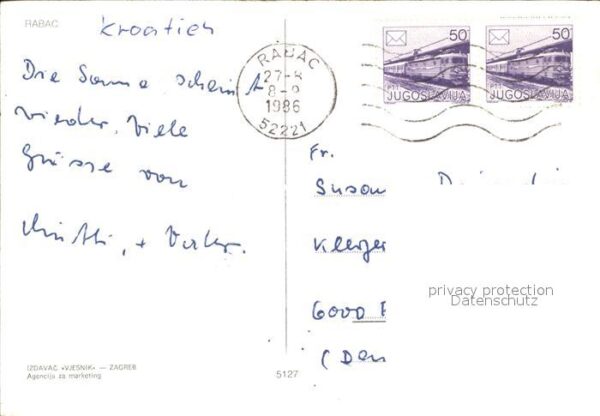 RABAC
Kroatien
Die Sonne scheint
wieder. Viele
Grüsse von
+
RABAC
27-8
1986
52221
50
JUGOSLAVIJA
50
JUGOSLAVIJA
Fr.
Susan
6000 F
(Den
privacy protection
Datenschutz
IZDAVAČ »VJESNIK« — ZAGREB
Agencija za marketing
5127